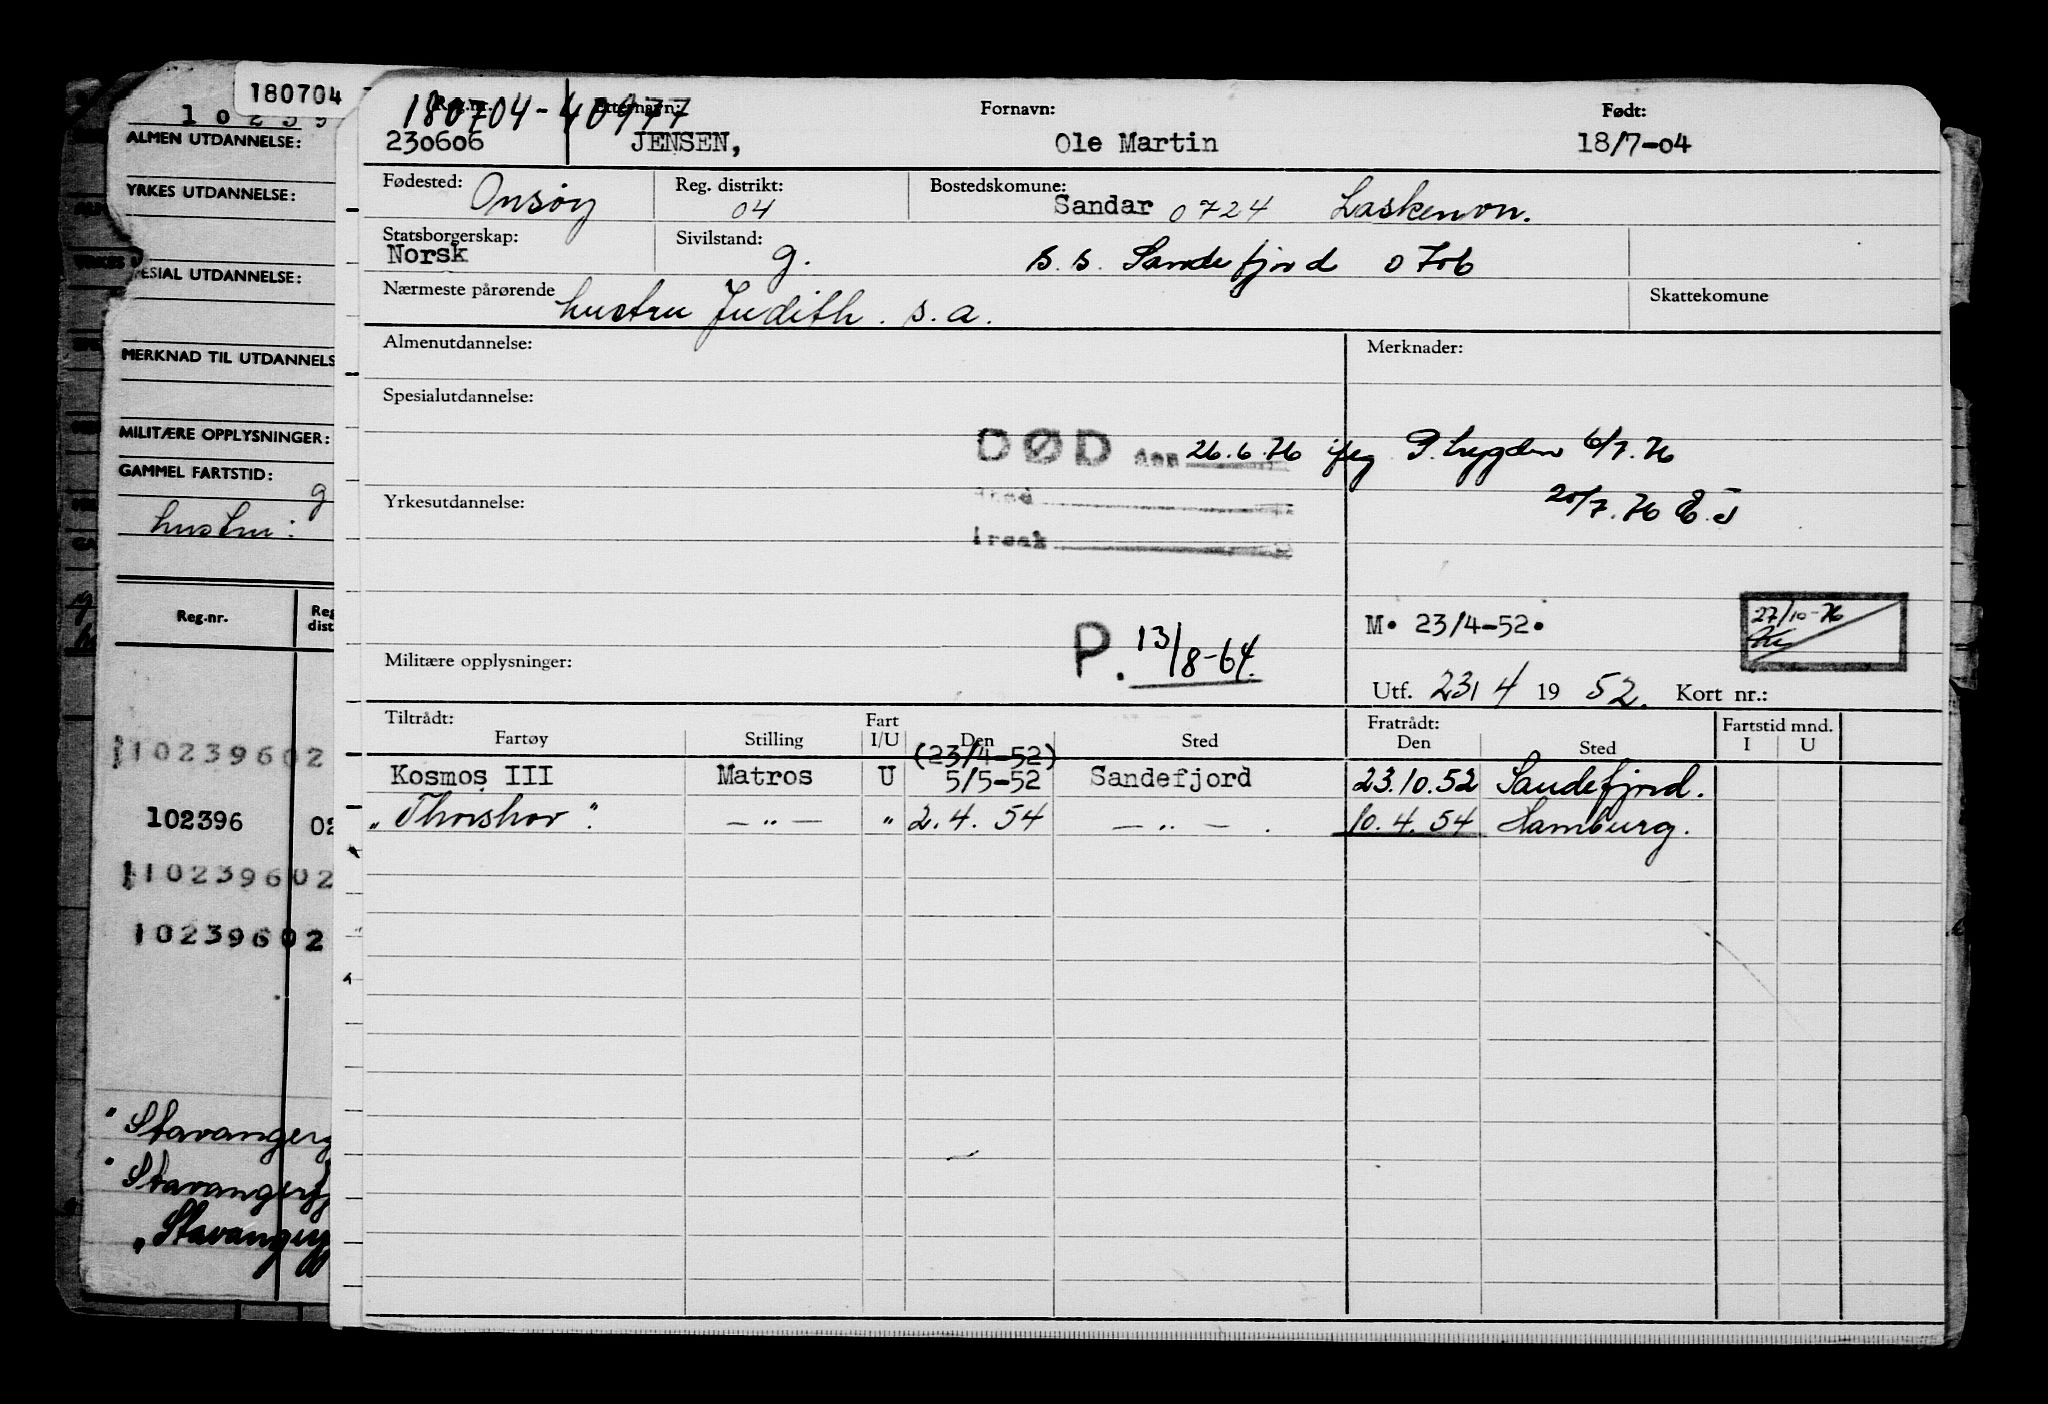 180704
10239
ALMEN UTDANNELSE:
YRKES UTDANNELSE:
SPESIAL UTDANNELSE:
MERKNAD TIL UTDANNELS
MILITÆRE OPPLYSNINGER:
GAMMEL FARTSTID:
g
hustru:
Reg.nr. Reg dist
1023960 2
102396 02
1023960 2
1023960 2
"Stavanger
"Stavanger
"Stavanger
Reg.nr. Etternavn: Fornavn: Født:
180704-40977
230606 JENSEN, Ole Martin 18/7-04
Fødested: Onsøy Reg. distrikt: 04 Bostedskomune: Sandar 0724
Statsborgerskap: Norsk Sivilstand: g. s. s. Sandefjord 0706
Nærmeste pårørende hustru Judith. s.a. Skattekomune
Almenutdannelse: Merknader:
Spesialutdannelse:
DØD den 26.6.76 iflg P. trygden 6/7.76
20/7.76
Yrkesutdannelse:
årsak
27/10-76
M. 23/4-52.
P. 13/8-64.
Militære opplysninger:
Utf. 23/4 19 52. Kort nr.:
Tiltrådt: Fart Fratrådt: Fartstid mnd.
Fartøy Stilling I/U Den Sted Den Sted I U
(23/4-52)
Kosmos III Matros U 5/5-52 Sandefjord 23.10.52 Sandefjord.
"Thorshov". — " — " 2.4.54 — " — . 10.4.54 Hamburg.